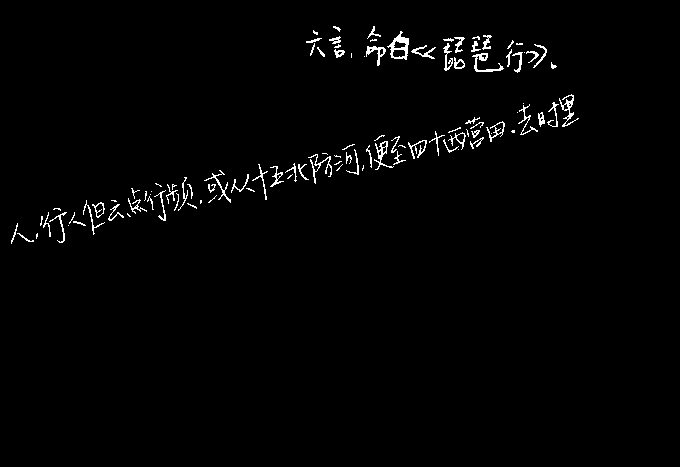 六言,命曰《琵琶行》.
人,行人但云点行频.或从十五北防河,便至四十西营田.去时里